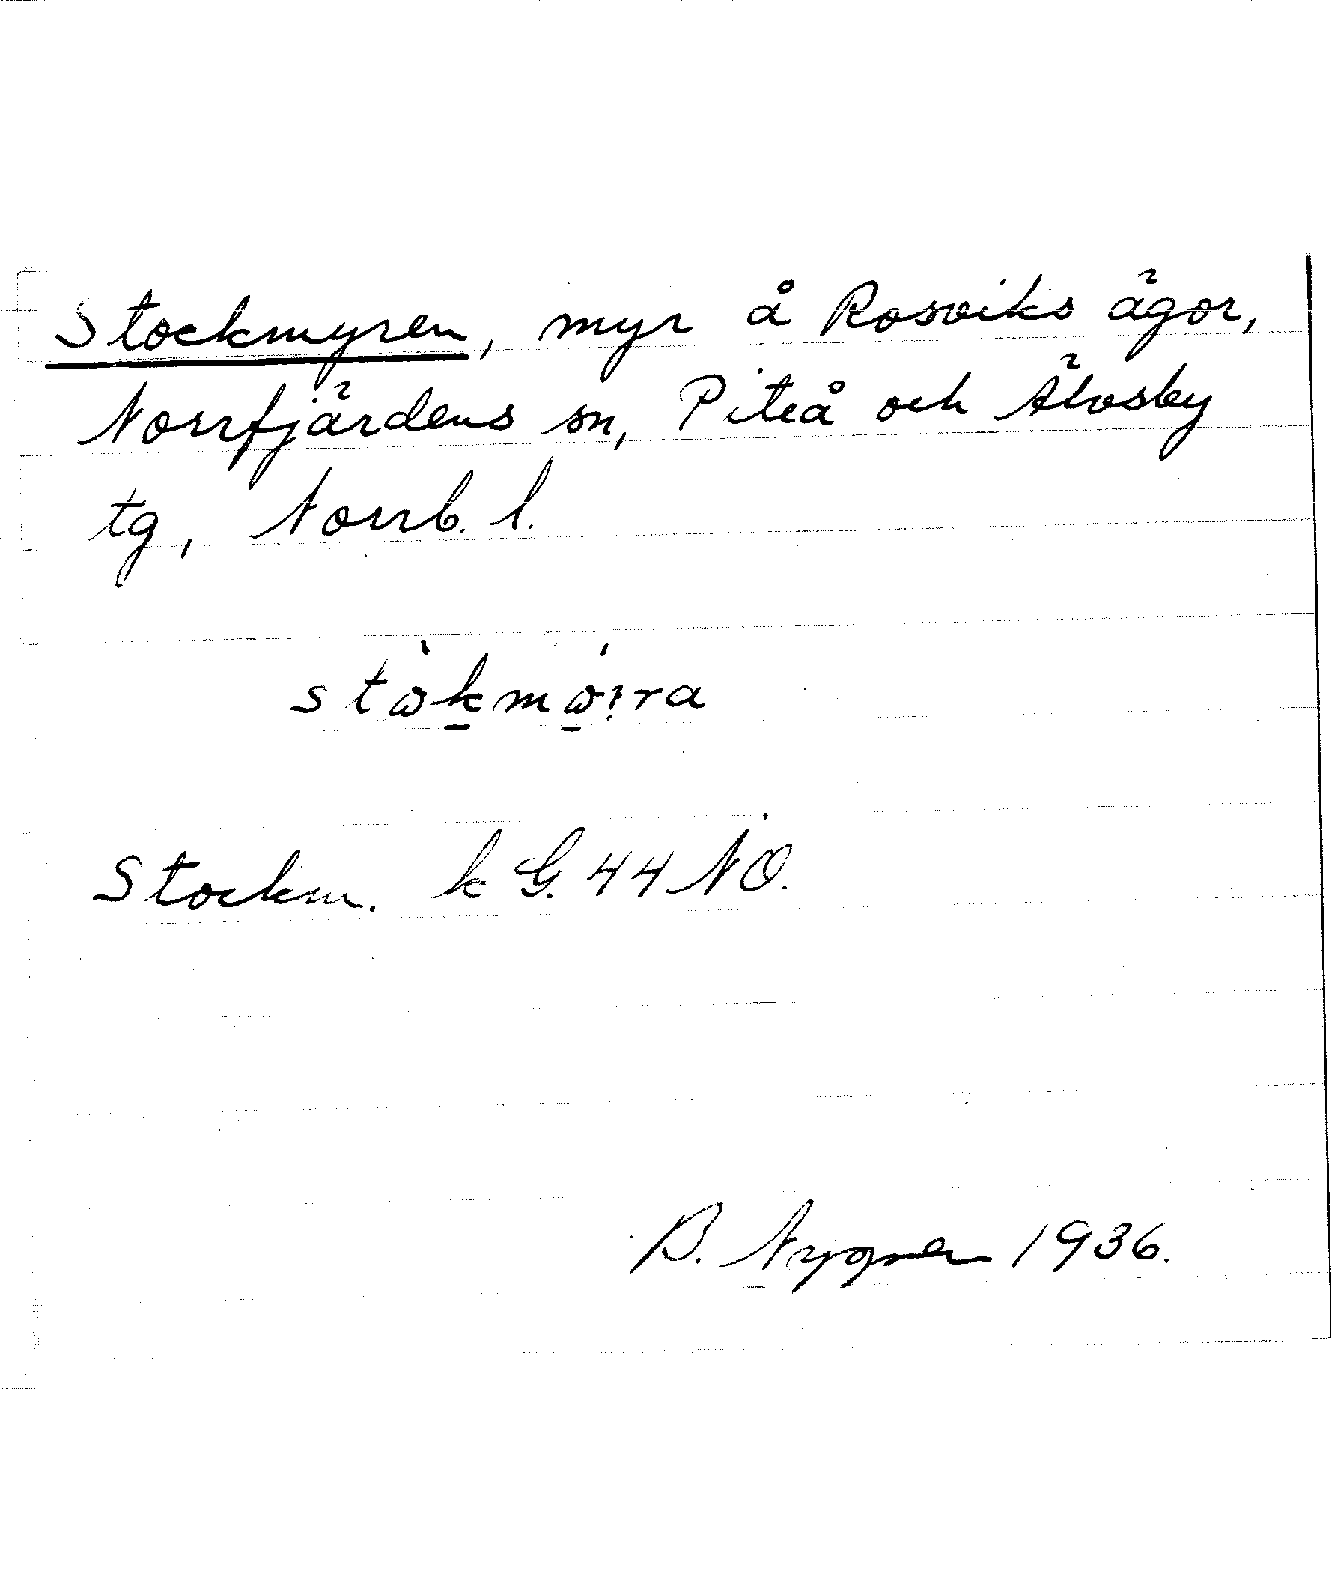 Stockmyren, myr å Rosviks ägor,
Norrfjärdens sn, Piteå och Älvsby
tg, Norrb. l.
Stockm. k G. 44 NO.
B. Nygren 1936.